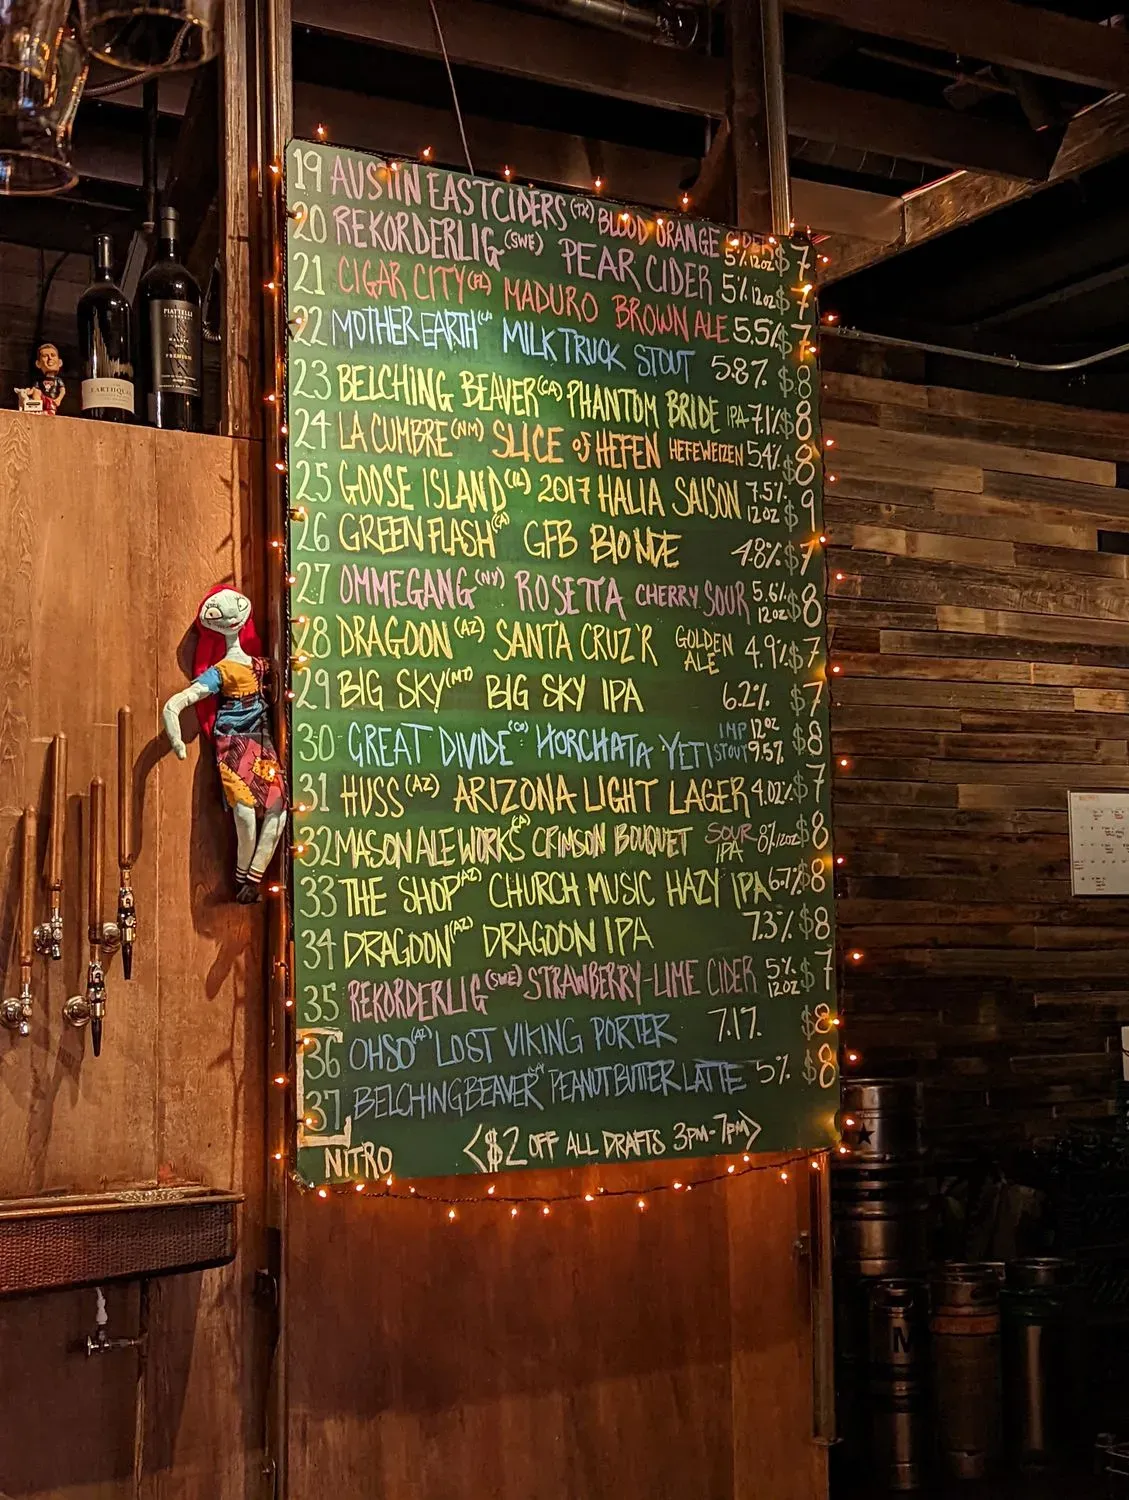 19 AUSTIN EASTCIDERS (TX) BLOOD ORANGE CIDER 5% 12oz $7
20 REKORDERLIG (SWE) PEAR CIDER 5% 12oz $7
21 CIGAR CITY (FL) MADURO BROWN ALE 5.5% $7
22 MOTHER EARTH MILK TRUCK STOUT 5.8% $8
23 BELCHING BEAVER (CA) PHANTOM BRIDE IPA-7.1% $8
24 LA CUMBRE (NM) SLICE of HEFEN HEFEWEIZEN 5.4% $8
25 GOOSE ISLAND (IL) 2017 HALIA SAISON 7.5% 12oz $9
26 GREEN FLASH (CA) GFB BLONDE 4.8% $7
27 OMMEGANG (NY) ROSETTA CHERRY SOUR 5.6% 12oz $8
28 DRAGOON (AZ) SANTA CRUZ'R GOLDEN ALE 4.9% $7
29 BIG SKY (MT) BIG SKY IPA 6.2% $7
30 GREAT DIVIDE (CO) HORCHATA YETI IMP STOUT 12oz 9.5% $8
31 HUSS (AZ) ARIZONA LIGHT LAGER 4.02% $7
32 MASON ALEWORKS (CA) CRIMSON BOUQUET SOUR IPA 8% 12oz $8
33 THE SHOP (AZ) CHURCH MUSIC HAZY IPA 6.7% $8
34 DRAGOON (AZ) DRAGOON IPA 7.3% $8
35 REKORDERLIG (SWE) STRAWBERRY-LIME CIDER 5% 12oz $7
36 OHSO (AZ) LOST VIKING PORTER 7.1% $8
37 BELCHING BEAVER (CA) PEANUT BUTTER LATTE 5% $8
NITRO <$2 OFF ALL DRAFTS 3PM-7PM>